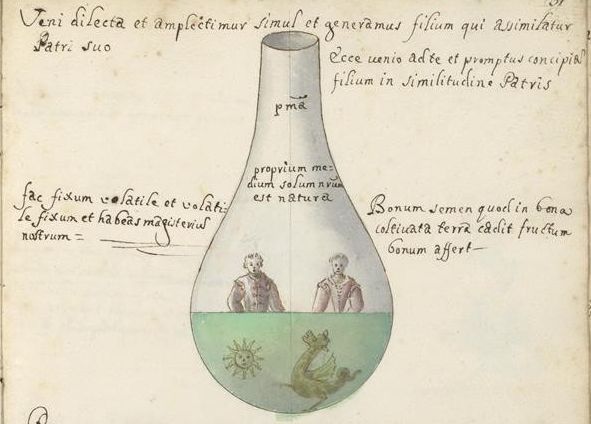 Veni dilecta et amplectimur simul et generamus filium qui assimilatur
Patri suo
Ecce venio ad te et promptus concipias
filium in similitudine Patris
pma
proprium me=
dium solum nrum
est natura
fac fixum volatile et volati=
le fixum et habeas magisterius
nostrum =
Bonum semen quod in bona
coltivata terra cadit fructum
bonum affert